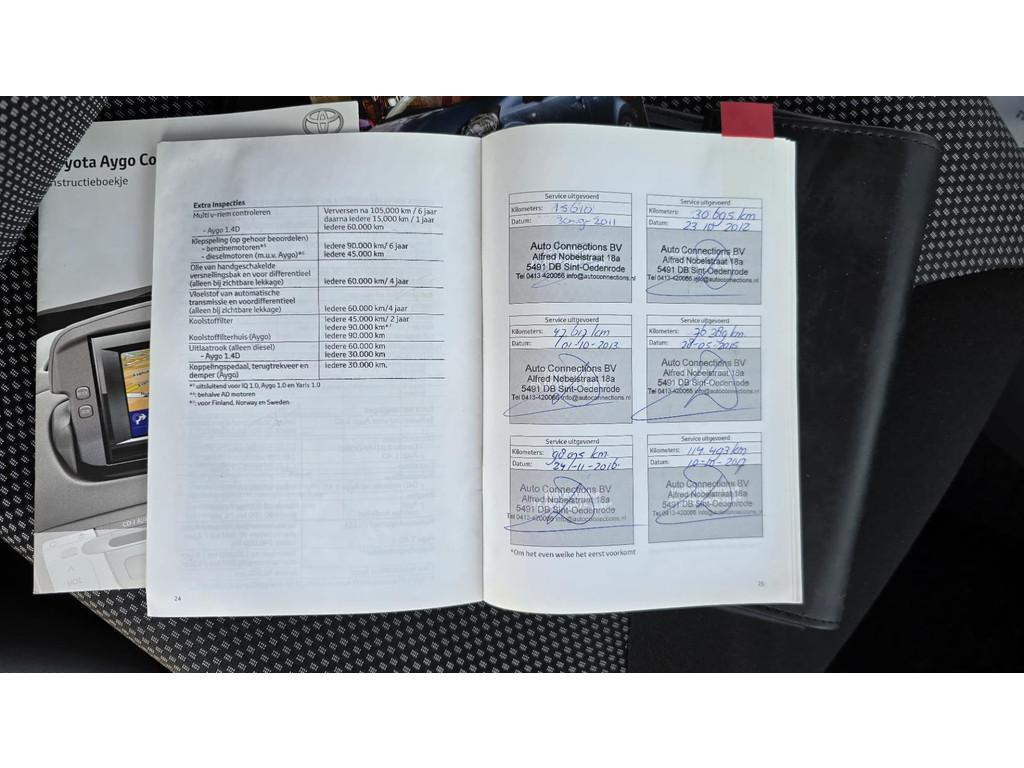 yota Aygo Co
nstructieboekje
Extra Inspecties
Multi v-riem controleren
Verversen na 105,000 km / 6 jaar
daarna iedere 15,000 km / 1 jaar
- Aygo 1.4D
iedere 60.000 km
Klepspeling (op gehoor beoordelen)
- benzinemotoren*¹
iedere 90.000 km/ 6 jaar
- dieselmotoren (m.u.v. Aygo)
iedere 45.000 km
Olie van handgeschakelde
versnellingsbak en voor differentieel
(alleen bij zichtbare lekkage)
iedere 60.000 km/ 4 jaar
Vloeistof van automatische
transmissie en voordifferentieel
(alleen bij zichtbare lekkage)
iedere 60.000 km/4 jaar
Koolstoffilter
iedere 45.000 km/ 2 jaar
iedere 90.000 km
Koolstoffilterhuis (Aygo)
iedere 90.000 km
Uitlaatrook (alleen diesel)
iedere 60.000 km
- Aygo 1.4D
iedere 30.000 km
Koppelingspedaal, terugtrekveer en
demper (Aygo)
iedere 30.000 km.
uitsluitend voor IQ 1.0, Aygo 1.0 en Yaris 1.0
: behalve AD motoren
: voor Finland, Norway en Sweden.
24
Service uitgevoerd
Kilometers:
Datum: 2011
Auto Connections BV
Alfred Nobelstraat 18a
5491 DB Sint-Oedenrode
Tel 0413-420066 info@autoconnections.nl
Service uitgevoerd
30 695 km
23 10 2012
Auto Connections BV
Alfred Nobelstraat 18a
5491 DB Sint-Oedenrode
Tel 0413-420066 info@autoconnections.nl
Service uitgevoerd
Kilometers: km
Datum: 01-10-2013
Auto Connections BV
Alfred Nobelstraat 18a
5491 DB Sint-Oedenrode
Tel 0413-420066 info@autoconnections.nl
Service uitgevoerd
Kilometers: km
Datum: -05-2015
Auto Connections BV
Alfred Nobelstraat 18a
5491 DB Sint-Oedenrode
Tel 0413-420066 info@autoconnections.nl
Service uitgevoerd
Kilometers: km
Datum: 24-11-2016
Auto Connections BV
Alfred Nobelstraat 18a
5491 DB Sint-Oedenrode
Tel 0413-420066 info@autoconnections.nl
Service uitgevoerd
Kilometers: 114.493 km
Datum: 2017
Auto Connections BV
Alfred Nobelstraat 18a
5491 DB Sint-Oedenrode
Tel 0413-420066 info@autoconnections.nl
*Om het even welke het eerst voorkomt
25